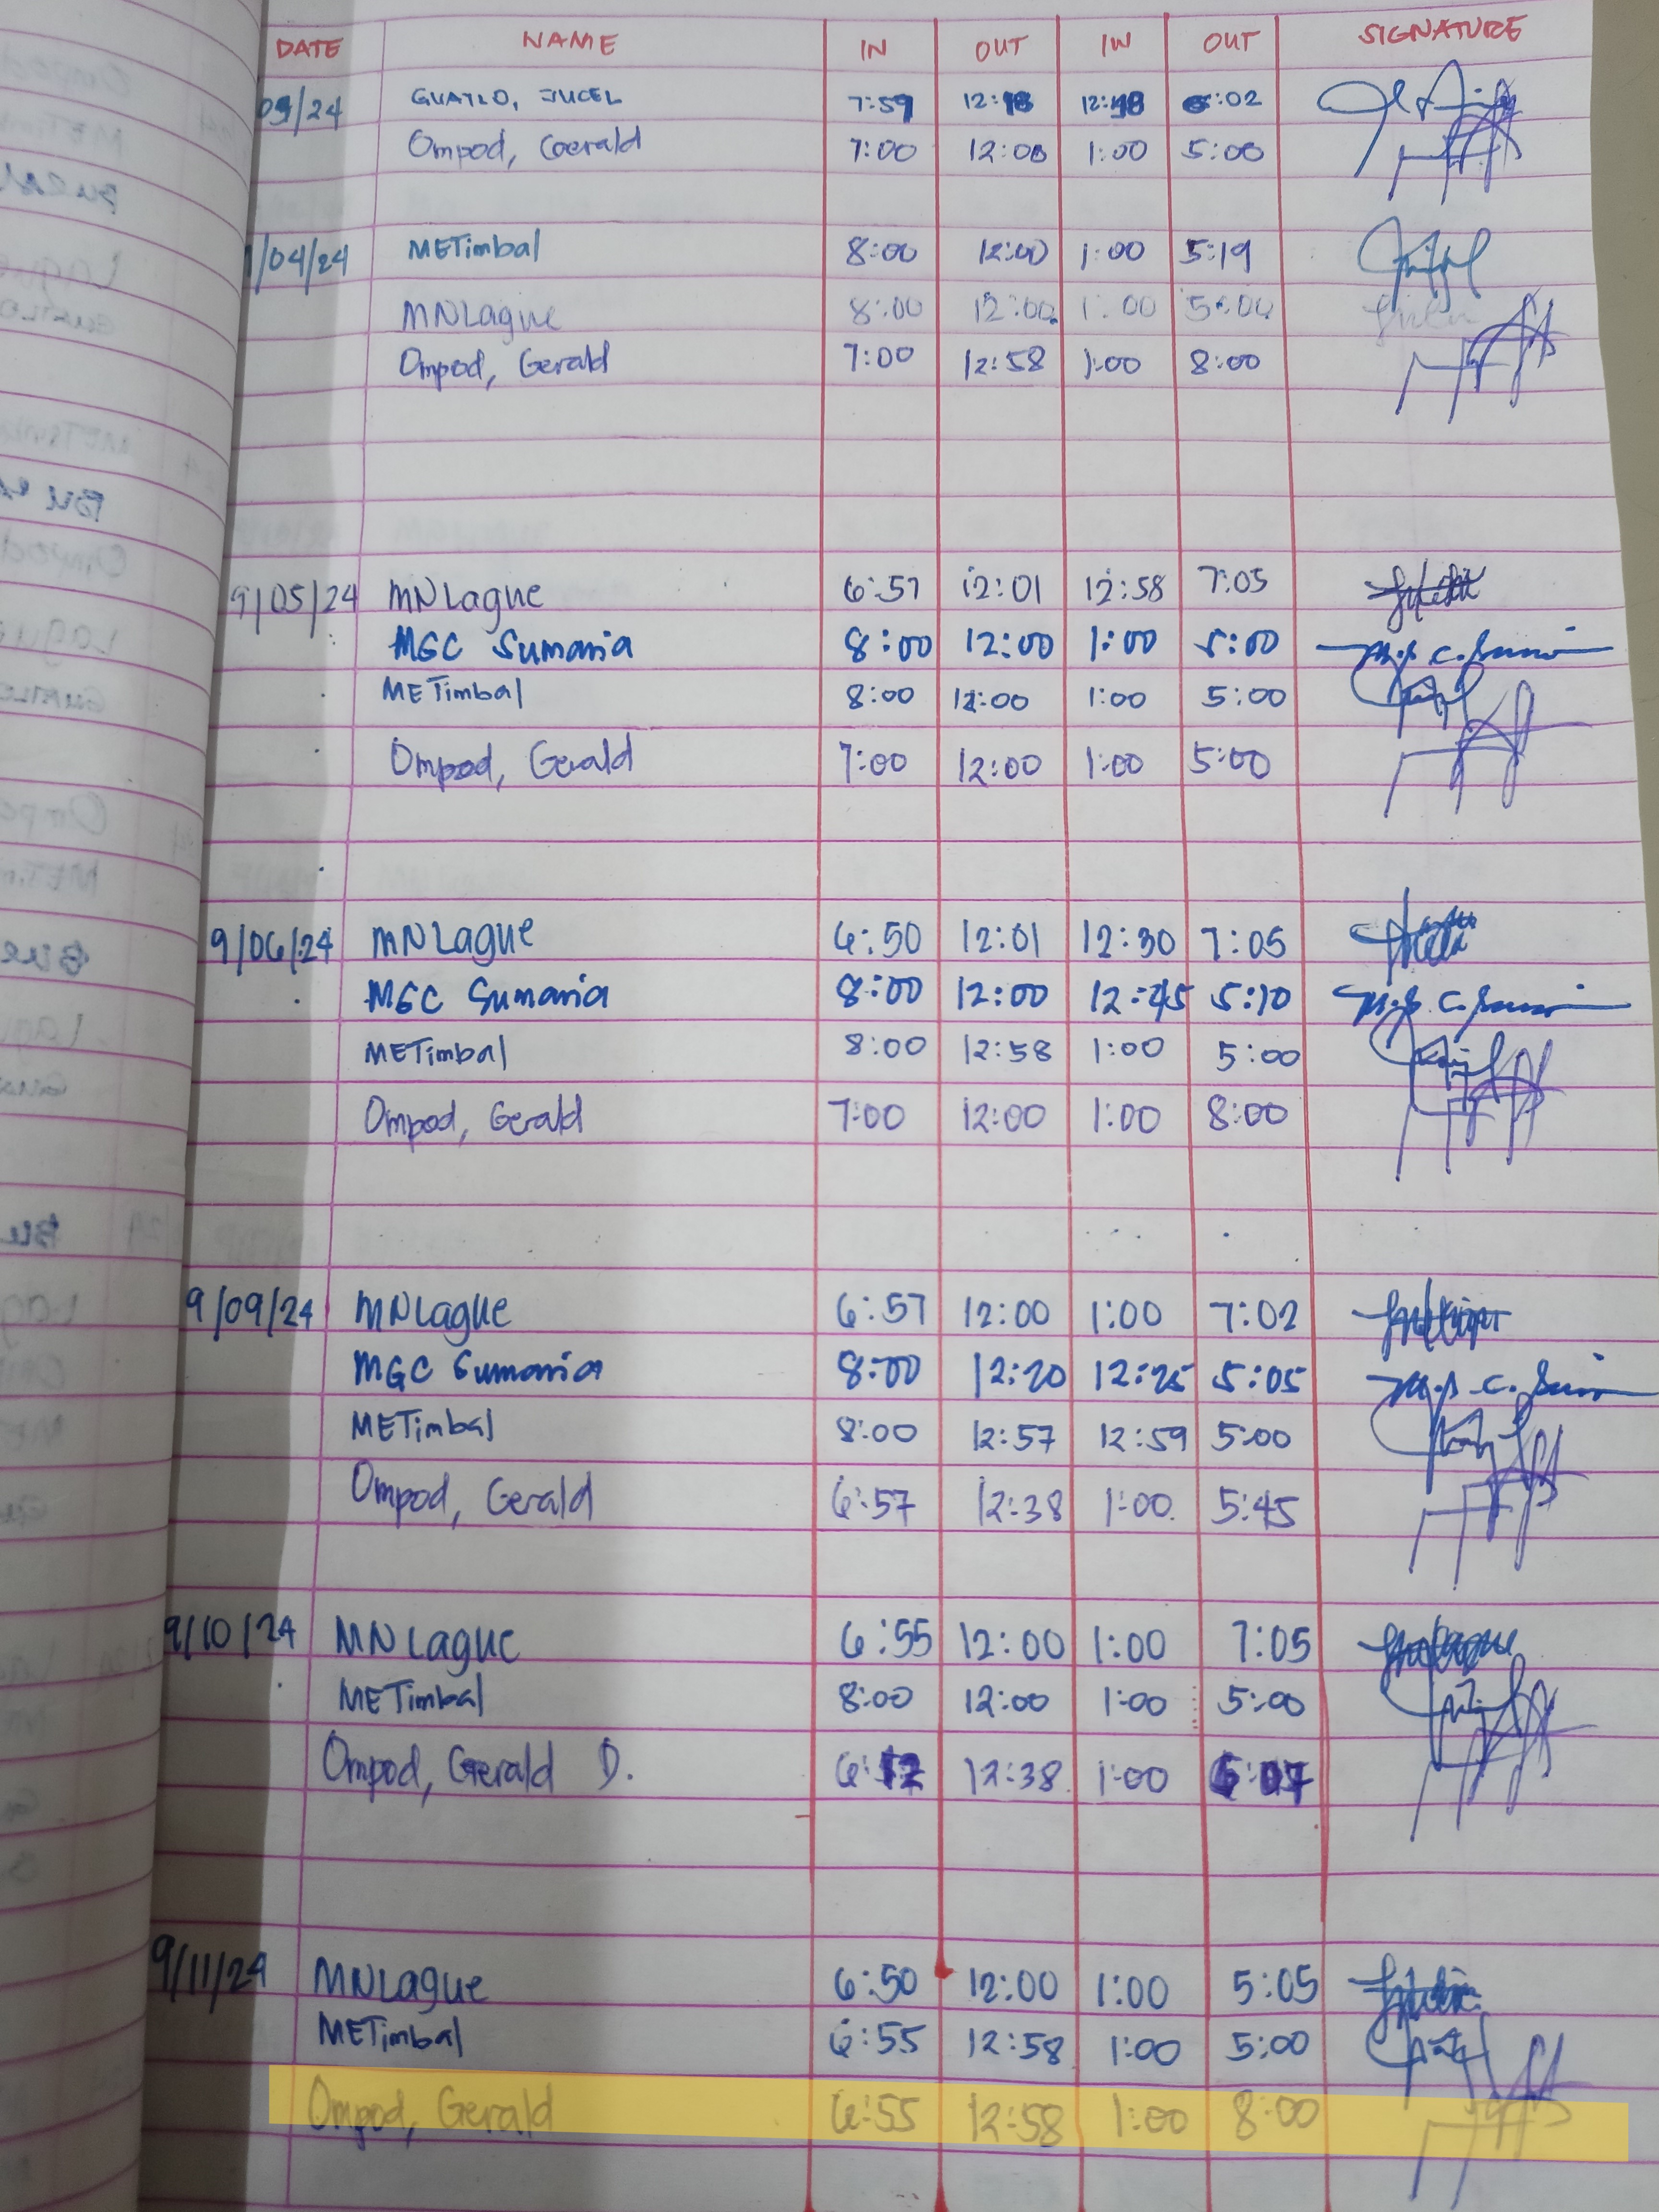 DATE NAME IN OUT IN OUT SIGNATURE
09/24 GUATLO, JUCEL 7:59 12:18 12:48 5:02
Ompod, Gerald 7:00 12:00 1:00 5:00
/04/24 METimbal 8:00 12:00 1:00 5:19
MNLague 8:00 12:00 1:00 5:00
Ompod, Gerald 7:00 12:58 1:00 8:00
9/05/24 MNLague 6:57 12:01 12:58 7:05
MGC Sumania 8:00 12:00 1:00 5:00
METimbal 8:00 12:00 1:00 5:00
Ompod, Gerald 7:00 12:00 1:00 5:00
9/06/24 MNLague 6:50 12:01 12:30 7:05
MGC Sumania 8:00 12:00 12:45 5:10
METimbal 8:00 12:58 1:00 5:00
Ompod, Gerald 7:00 12:00 1:00 8:00
9/09/24 MNLague 6:57 12:00 1:00 7:02
MGC Sumania 8:00 12:20 12:25 5:05
METimbal 8:00 12:57 12:59 5:00
Ompod, Gerald 6:57 12:38 1:00 5:45
9/10/24 MNLague 6:55 12:00 1:00 7:05
METimbal 8:00 12:00 1:00 5:00
Ompod, Gerald D. 12:38 1:00
9/11/24 MNLague 6:50 12:00 1:00 5:05
METimbal 6:55 12:58 1:00 5:00
Ompod, Gerald 6:55 12:58 1:00 8:00